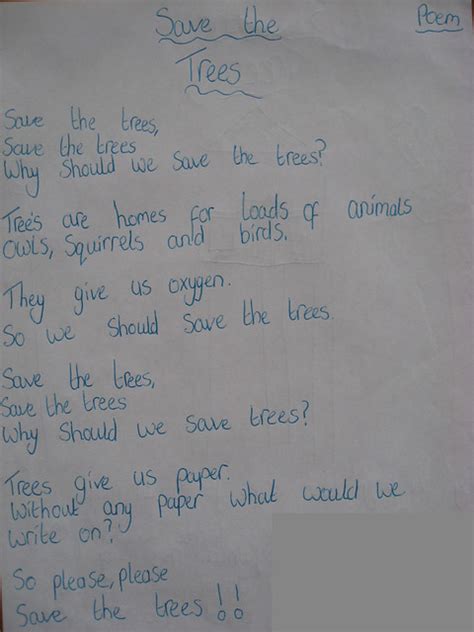 Save the
Poem
Trees
Save the trees,
Save the trees
Why Should we save the trees?
Trees are homes for loads of animals
owls, Squirrels and birds.
They give us oxygen.
So we should save the trees.
Save the trees,
Save the trees
Why Should we save trees?
Trees give us paper.
Without any paper what would we
write on?
So please, please
Save the trees !!